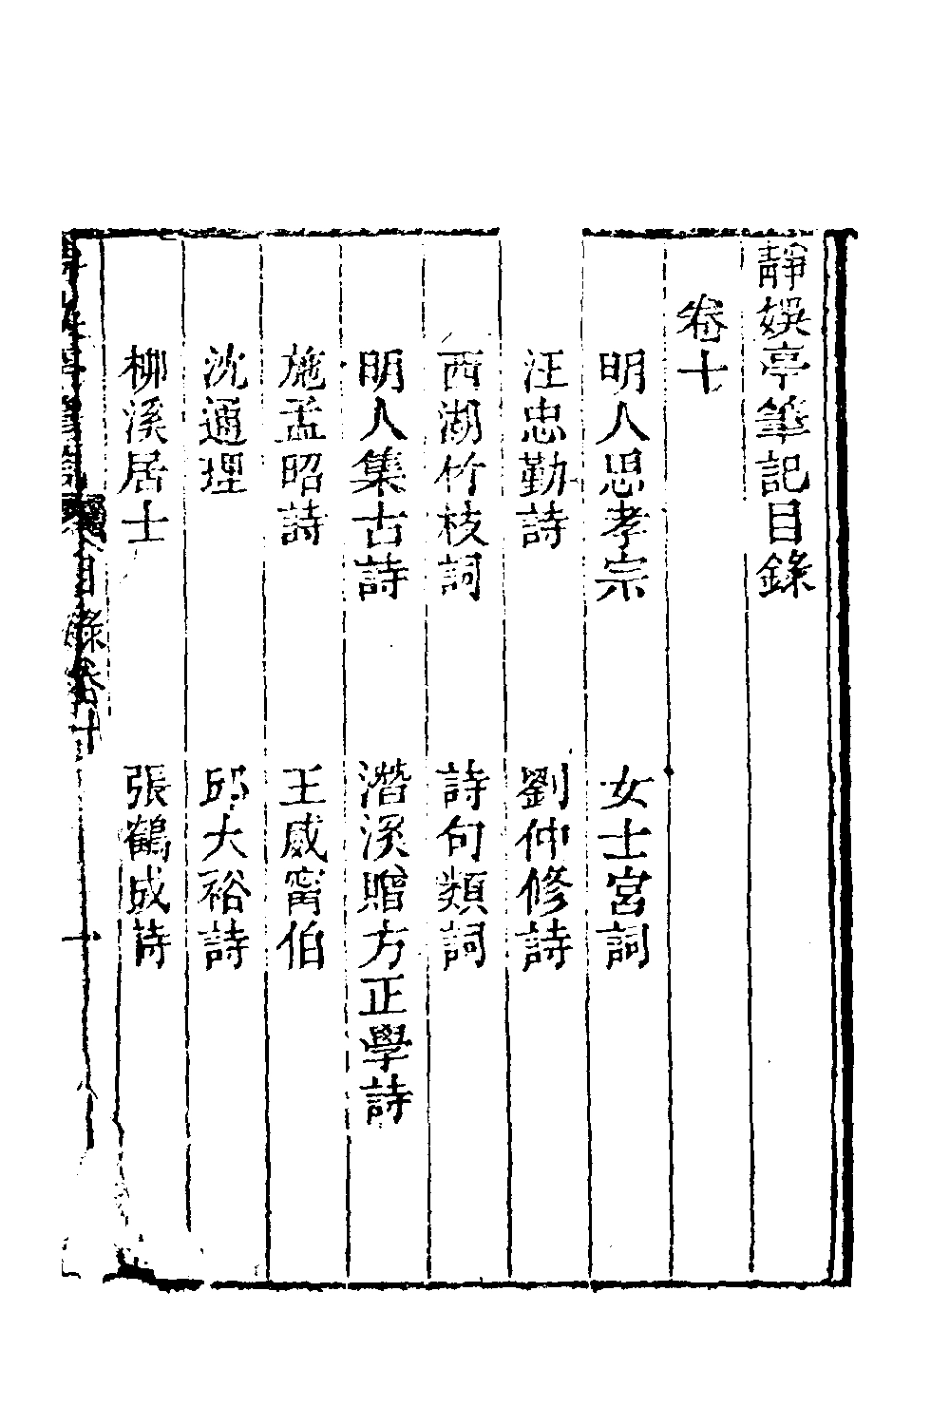 靜娛亭筆記目錄
卷十
明人思孝宗　女士宮詞
汪忠勤詩　劉仲修詩
西湖竹枝詞　詩句類詞
明人集古詩　潛溪贈方正學詩
施孟昭詩　王威甯伯
沈通理　邱大裕詩
柳溪居士　張鶴成詩
目錄卷十
一